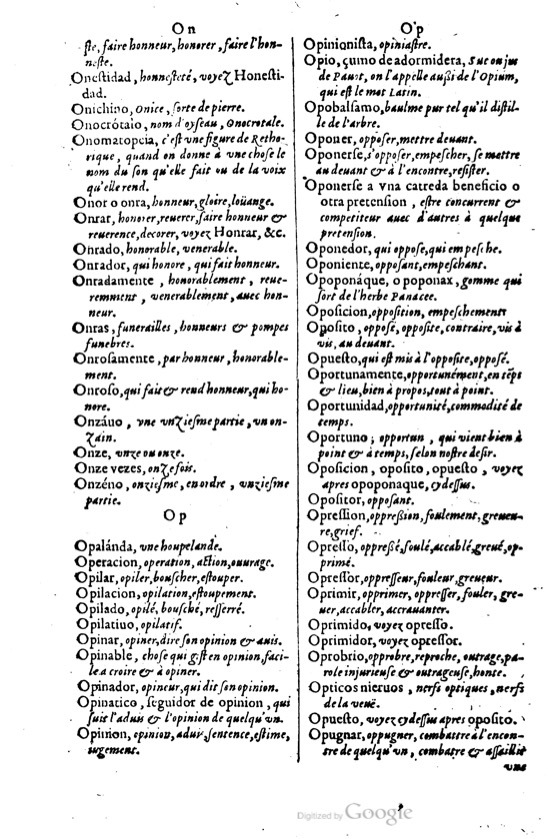 On
ste, faire honneur, honorer, faire l'hon-
neste.
Onestidad, honnesteté, voyez Honesti-
dad.
Onichino, onice, sorte de pierre.
Onocrótalo, nom d'oyseau, Onocrotale.
Onomatopeia, c'est vne figure de Retho-
rique, quand on donne à vne chose le
nom du son qu'elle fait ou de la voix
qu'elle rend.
Onor o onra, honneur, gloire, loüange.
Onrar, honorer, reuerer, faire honneur &
reuerence, decorer, voyez Honrar, &c.
Onrado, honorable, venerable.
Onrador, qui honore, qui fait honneur.
Onradamente, honorablement, reue-
remment, venerablement, auec hon-
neur.
Onras, funerailles, honneurs & pompes
funebres.
Onrosamente, par honneur, honorable-
ment.
Onroso, qui fait & rend honneur, qui ho-
nore.
Onzáuo, vne vnziesme partie, vn on-
zain.
Onze, vnze ou onze.
Onze vezes, onze fois.
Onzéno, onziesme, en ordre, vnziesme
partie.
Op
Opalánda, vne houpelande.
Operacion, operation, action, ouurage.
Opilar, opiler, bouscher, estouper.
Opilacion, opilation, estoupement.
Opilado, opilé, bousché, resserré.
Opilatiuo, opilatif.
Opinar, opiner, dire son opinion & auis.
Opinable, chose qui gist en opinion, faci-
le a croire & à opiner.
Opinador, opineur, qui dit son opinion.
Opinatico, seguidor de opinion, qui
suit l'aduis & l'opinion de quelqu'vn.
Opinion, opinion, aduis, sentence, estime,
iugement.
Op
Opinionista, opiniastre.
Opio, çumo de adormidera, Suc ou jus
de Pauot, on l'appelle außi de l'Opium,
qui est le mot Latin.
Opobalsamo, baulme pur tel qu'il distil-
le de l'arbre.
Oponer, opposer, mettre deuant.
Oponerse, s'opposer, empescher, se mettre
au deuant & à l'encontre, resister.
Oponerse a vna catreda beneficio o
otra pretension, estre concurrent &
competiteur auec d'autres à quelque
pretension.
Oponedor, qui oppose, qui empesche.
Oponiente, opposant, empeschant.
Opoponáque, o poponax, gomme qui
sort de l'herbe Panacee.
Oposicion, opposition, empeschement
Oposito, opposé, opposite, contraire, vis à
vis, au deuant.
Opuesto, qui est mis à l'opposite, opposé.
Oportunamente, opportunément, en tẽps
& lieu, bien à propos, tout à point.
Oportunidad, opportunité, commodité de
temps.
Oportuno; opportun, qui vient bien à
point & à temps, selon nostre desir.
Oposicion, oposito, opuesto, voyez
apres opoponaque, cy dessus.
Opositor, opposant.
Opression, oppreßion, foulement, greueu-
re, grief.
Opresso, oppreßé, foulé, accablé, greué, op-
primé.
Opressor, oppresseur, fouleur, greueur.
Oprimir, opprimer, oppresser, fouler, gre-
uer, accabler, accrauanter.
Oprimido, voyez opresso.
Oprimidor, voyez opressor.
Oprobrio, opprobre, reproche, outrage, pa-
role injurieuse & outrageuse, honte.
Opticos nieruos, nerfs optiques, nerfs
de la veuë.
Opuesto, voyez cy dessus apres oposito.
Opugnar, oppugner, combattre à l'encon-
tre de quelqu'vn, combatre & assaillir
vne
Digitized by Google